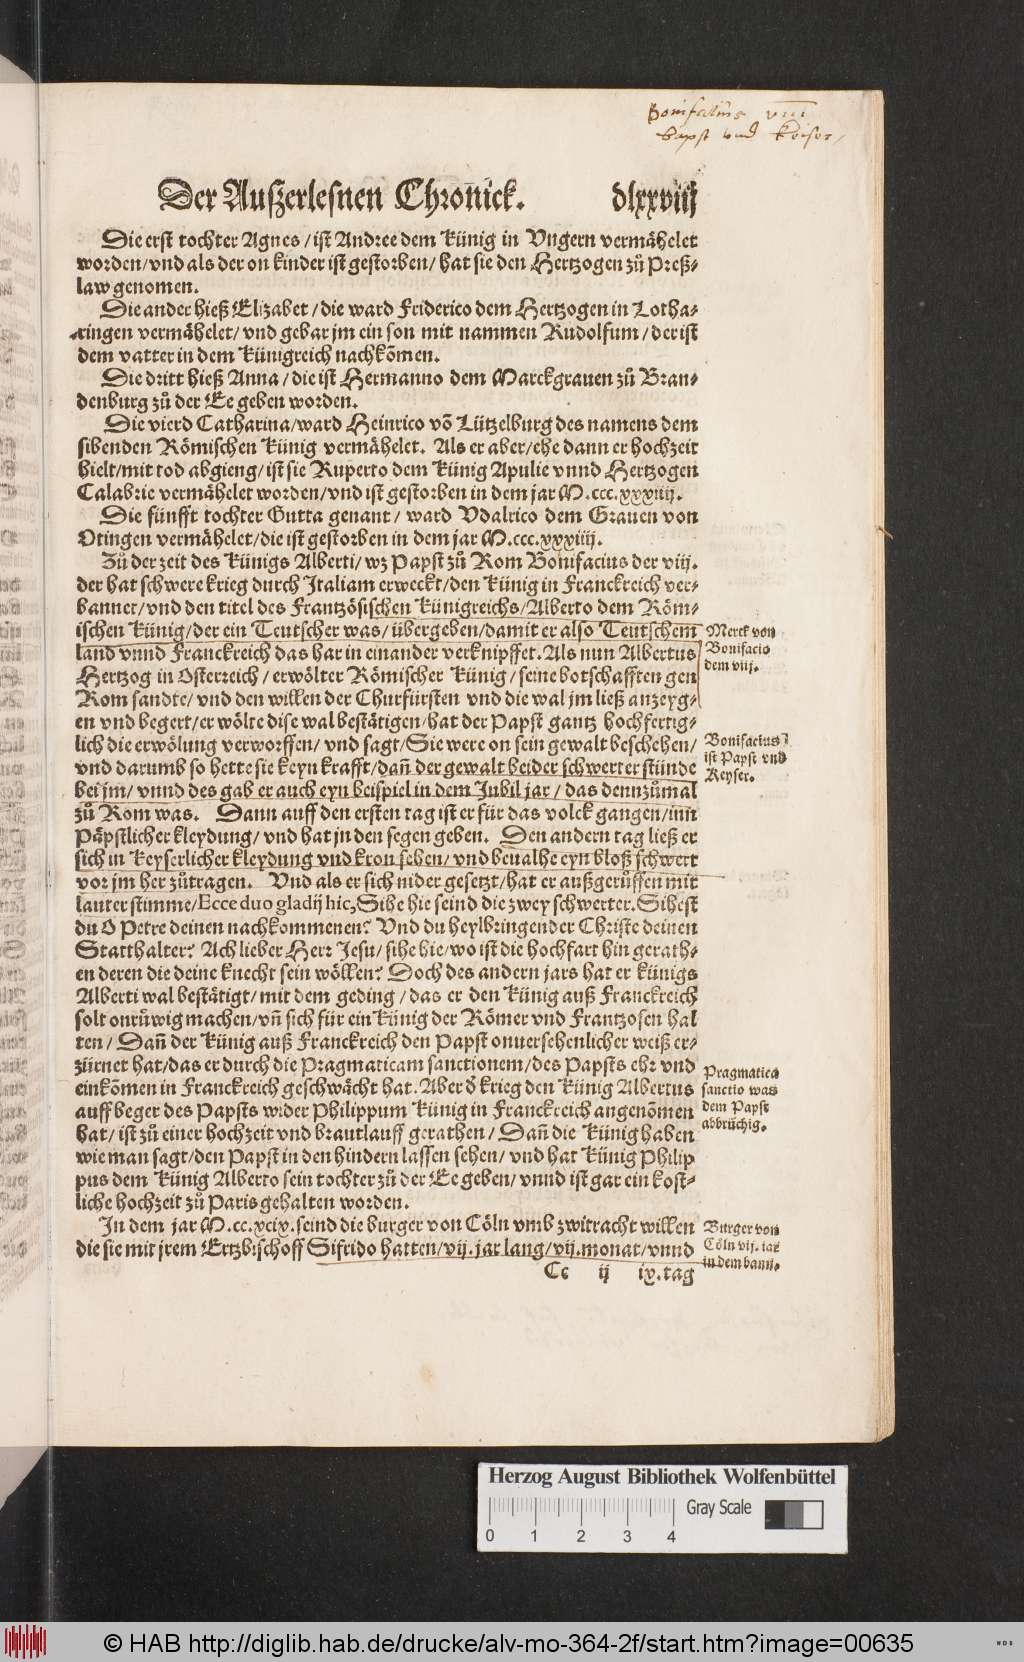 Bonifatius VIII
bapst und keiser
Der Außerlesnen Chronick. dlxxviij
Die erst tochter Agnes / ist Andree dem Künig in Vngern vermähelet
worden / vnd als der on kinder ist gestorben / hat sie den Hertzogen zů Preß-
law genomen.
Die ander hieß Elizabet / die ward Friderico dem Hertzogen in Lotha-
ringen vermähelet / vnd gebar jm ein son mit nammen Rudolfum / der ist
dem vatter in dem Künigreich nachkōmen.
Die dritt hieß Anna / die ist Hermanno dem Marckgrauen zů Bran-
denburg zů der Ee geben worden.
Die vierd Catharina / ward Heinrico vō Lützelburg des namens dem
sibenden Römischen Künig vermähelet. Als er aber / ehe dann er hochzeit
hielt / mit tod abgieng / ist sie Ruperto dem Künig Apulie vnnd Hertzogen
Calabrie vermähelet worden / vnd ist gestorben in dem jar M.ccc.xxxiiij.
Die fünfft tochter Gutta genant / ward Vdalrico dem Grauen von
Otingen vermähelet / die ist gestorben in dem jar M.ccc.xxxiiij.
Zů der zeit des Künigs Alberti / wz Papst zů Rom Bonifacius der viij.
der hat schwere krieg durch Italiam erweckt / den Künig in Franckreich ver-
bannet / vnd den titel des Frantzösischen Künigreichs / Alberto dem Röm-
ischen Künig / der ein Teutscher was / übergeben / damit er also Teutschem
land vnnd Franckreich das har in einander verknipffet. Als nun Albertus
Hertzog in Osterreich / erwölter Römischer Künig / seine botschafften gen
Rom sandte / vnd den willen der Churfürsten vnd die wal jm ließ anzeyg-
en vnd begert / er wölte dise wal bestätigen / hat der Papst gantz hochfertig-
lich die erwölung verworffen / vnd sagt / Sie were on sein gewalt beschehen /
vnd darumb so hette sie keyn krafft / dañ der gewalt beider schwerter stünde
bei jm / vnnd des gab er auch eyn beispiel in dem Jubil jar / das dennzůmal
zů Rom was. Dann auff den ersten tag ist er für das volck gangen / inn
Päpstlicher kleydung / vnd hat jn den segen geben. Den andern tag ließ er
sich in Keyserlicher kleydung vnd kron sehen / vnd beualhe eyn bloß schwert
vor jm her zůtragen. Vnd als er sich nider gesetzt / hat er außgerůffen mit
lauter stimme / Ecce duo gladij hic, Sihe hie seind die zwey schwerter. Sihest
du O Petre deinen nachkommenen? Vnd du heylbringender Christe deinen
Statthalter? Ach lieber Herr Jesu / sihe hie / wo ist die hochfart hin gerath-
en deren die deine knecht sein wöllen? Doch des andern jars hat er Künigs
Alberti wal bestätigt / mit dem geding / das er den Künig auß Franckreich
solt onrůwig machen / vñ sich für ein Künig der Römer vnd Frantzosen hal
ten / Dañ der Künig auß Franckreich den Papst onuersehenlicher weiß er-
zürnet hat / das er durch die Pragmaticam sanctionem / des Papsts ehr vnd
einkōmen in Franckreich geschwächt hat. Aber d̄ krieg den Künig Albertus
auff beger des Papsts wider Philippum Künig in Franckreich angenōmen
hat / ist zů einer hochzeit vnd brautlauff gerathen / Dañ die Künig haben
wie man sagt / den Papst in den hindern lassen sehen / vnd hat Künig Philip
pus dem Künig Alberto sein tochter zů der Ee geben / vnnd ist gar ein kost-
liche hochzeit zů Paris gehalten worden.
In dem jar M.cc.xcix. seind die burger von Cöln vmb zwitracht willen
die sie mit jrem Ertzbischoff Sifrido hatten / vij. jar lang / vij. monat / vnnd
Cc ij ix. tag
Merck von
Bonifacio
dem viij.
Bonifacius
ist Papst vnd
Keyser.
Pragmatica
sanctio was
dem Papst
abbrüchig.
Burger von
Cöln vij. jar
in dem bann.
Herzog August Bibliothek Wolfenbüttel
Gray Scale
0 1 2 3 4
© HAB http://diglib.hab.de/drucke/alv-mo-364-2f/start.htm?image=00635